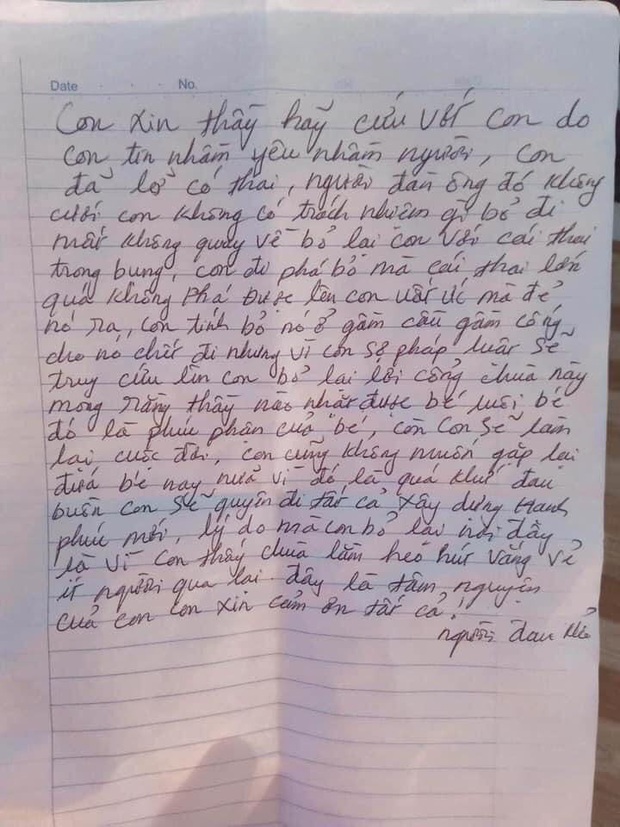 Date . . . No.
Con xin thầy hãy cứu vớt con do
con tin nhầm yêu nhầm người, con
đã lở có thai, người đàn ông đó không
cưới con không có trách nhiệm gì bỏ đi
mất không quay về bỏ lại con với cái thai
trong bụng, con đi phá bỏ mà cái thai lớn
quá không phá được lên con uất ức mà đẻ
nó ra, con tính bỏ nó ở gầm cầu gầm cống
cho nó chết đi nhưng vì con sợ pháp luật sẽ
truy cứu lên con bỏ lại lời cổng chùa này
mong rằng thầy nào nhặt được bé nuôi bé
đó là phúc phần của bé, còn con sẽ làm
lại cuộc đời, con cũng không muốn gặp lại
đứa bé này nữa vì đó là quá khứ đau
buồn con sẽ quyên đi tất cả xây dựng hạnh
phúc mới, lý do mà con bỏ lại nơi đây
là vì con thấy chùa lằm heo hút vắng vẻ
ít người qua lại. đây là tâm nguyện
của con con xin cảm ơn tất cả!
người đau khổ